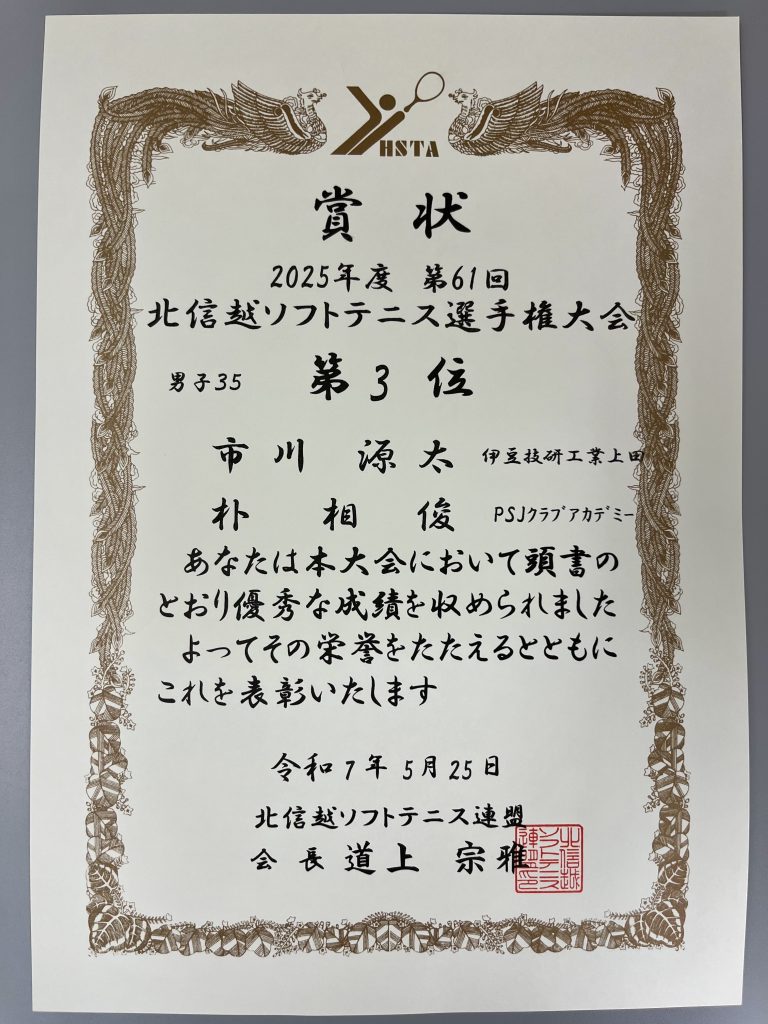 HSTA
賞状
2025年度 第61回
北信越ソフトテニス選手権大会
男子35 第3位
市川 源太 伊豆技研工業上田
朴 相俊 PSJクラブアカデミー
あなたは本大会において頭書の
とおり優秀な成績を収められました
よってその栄誉をたたえるとともに
これを表彰いたします
令和7年5月25日
北信越ソフトテニス連盟
会長 道上 宗雅
北信越
ソフトテニス
連盟印